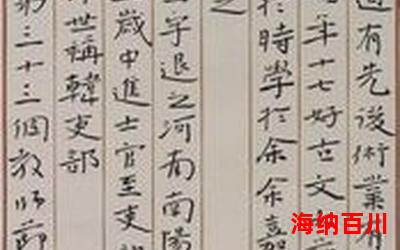 有先後術業有
年十七好古文
於時學於余余嘉
之
字退之河南南陽
歲中進士官至吏
世稱韓吏部
第三十三個教師節
海纳百川